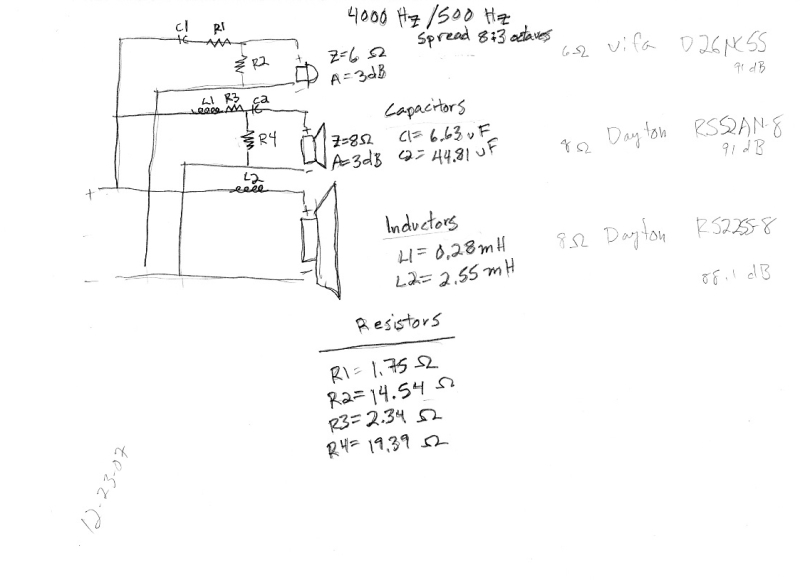 4000 Hz / 500 Hz
Spread 8:1 3 octaves
C1 R1
R2
Z=6 Ω
A=3dB
6Ω vifa D26NC55
91 dB
L1 R3 C2
R4
Z=8Ω
A=3dB
Capacitors
C1= 6.63 uF
C2= 44.81 uF
8Ω Dayton RS52AN-8
91 dB
L2
+
-
Inductors
L1= 0.28 mH
L2= 2.55 mH
8Ω Dayton RS225S-8
88.1 dB
Resistors
R1= 1.75 Ω
R2= 14.54 Ω
R3= 2.34 Ω
R4= 19.39 Ω
12-23-07